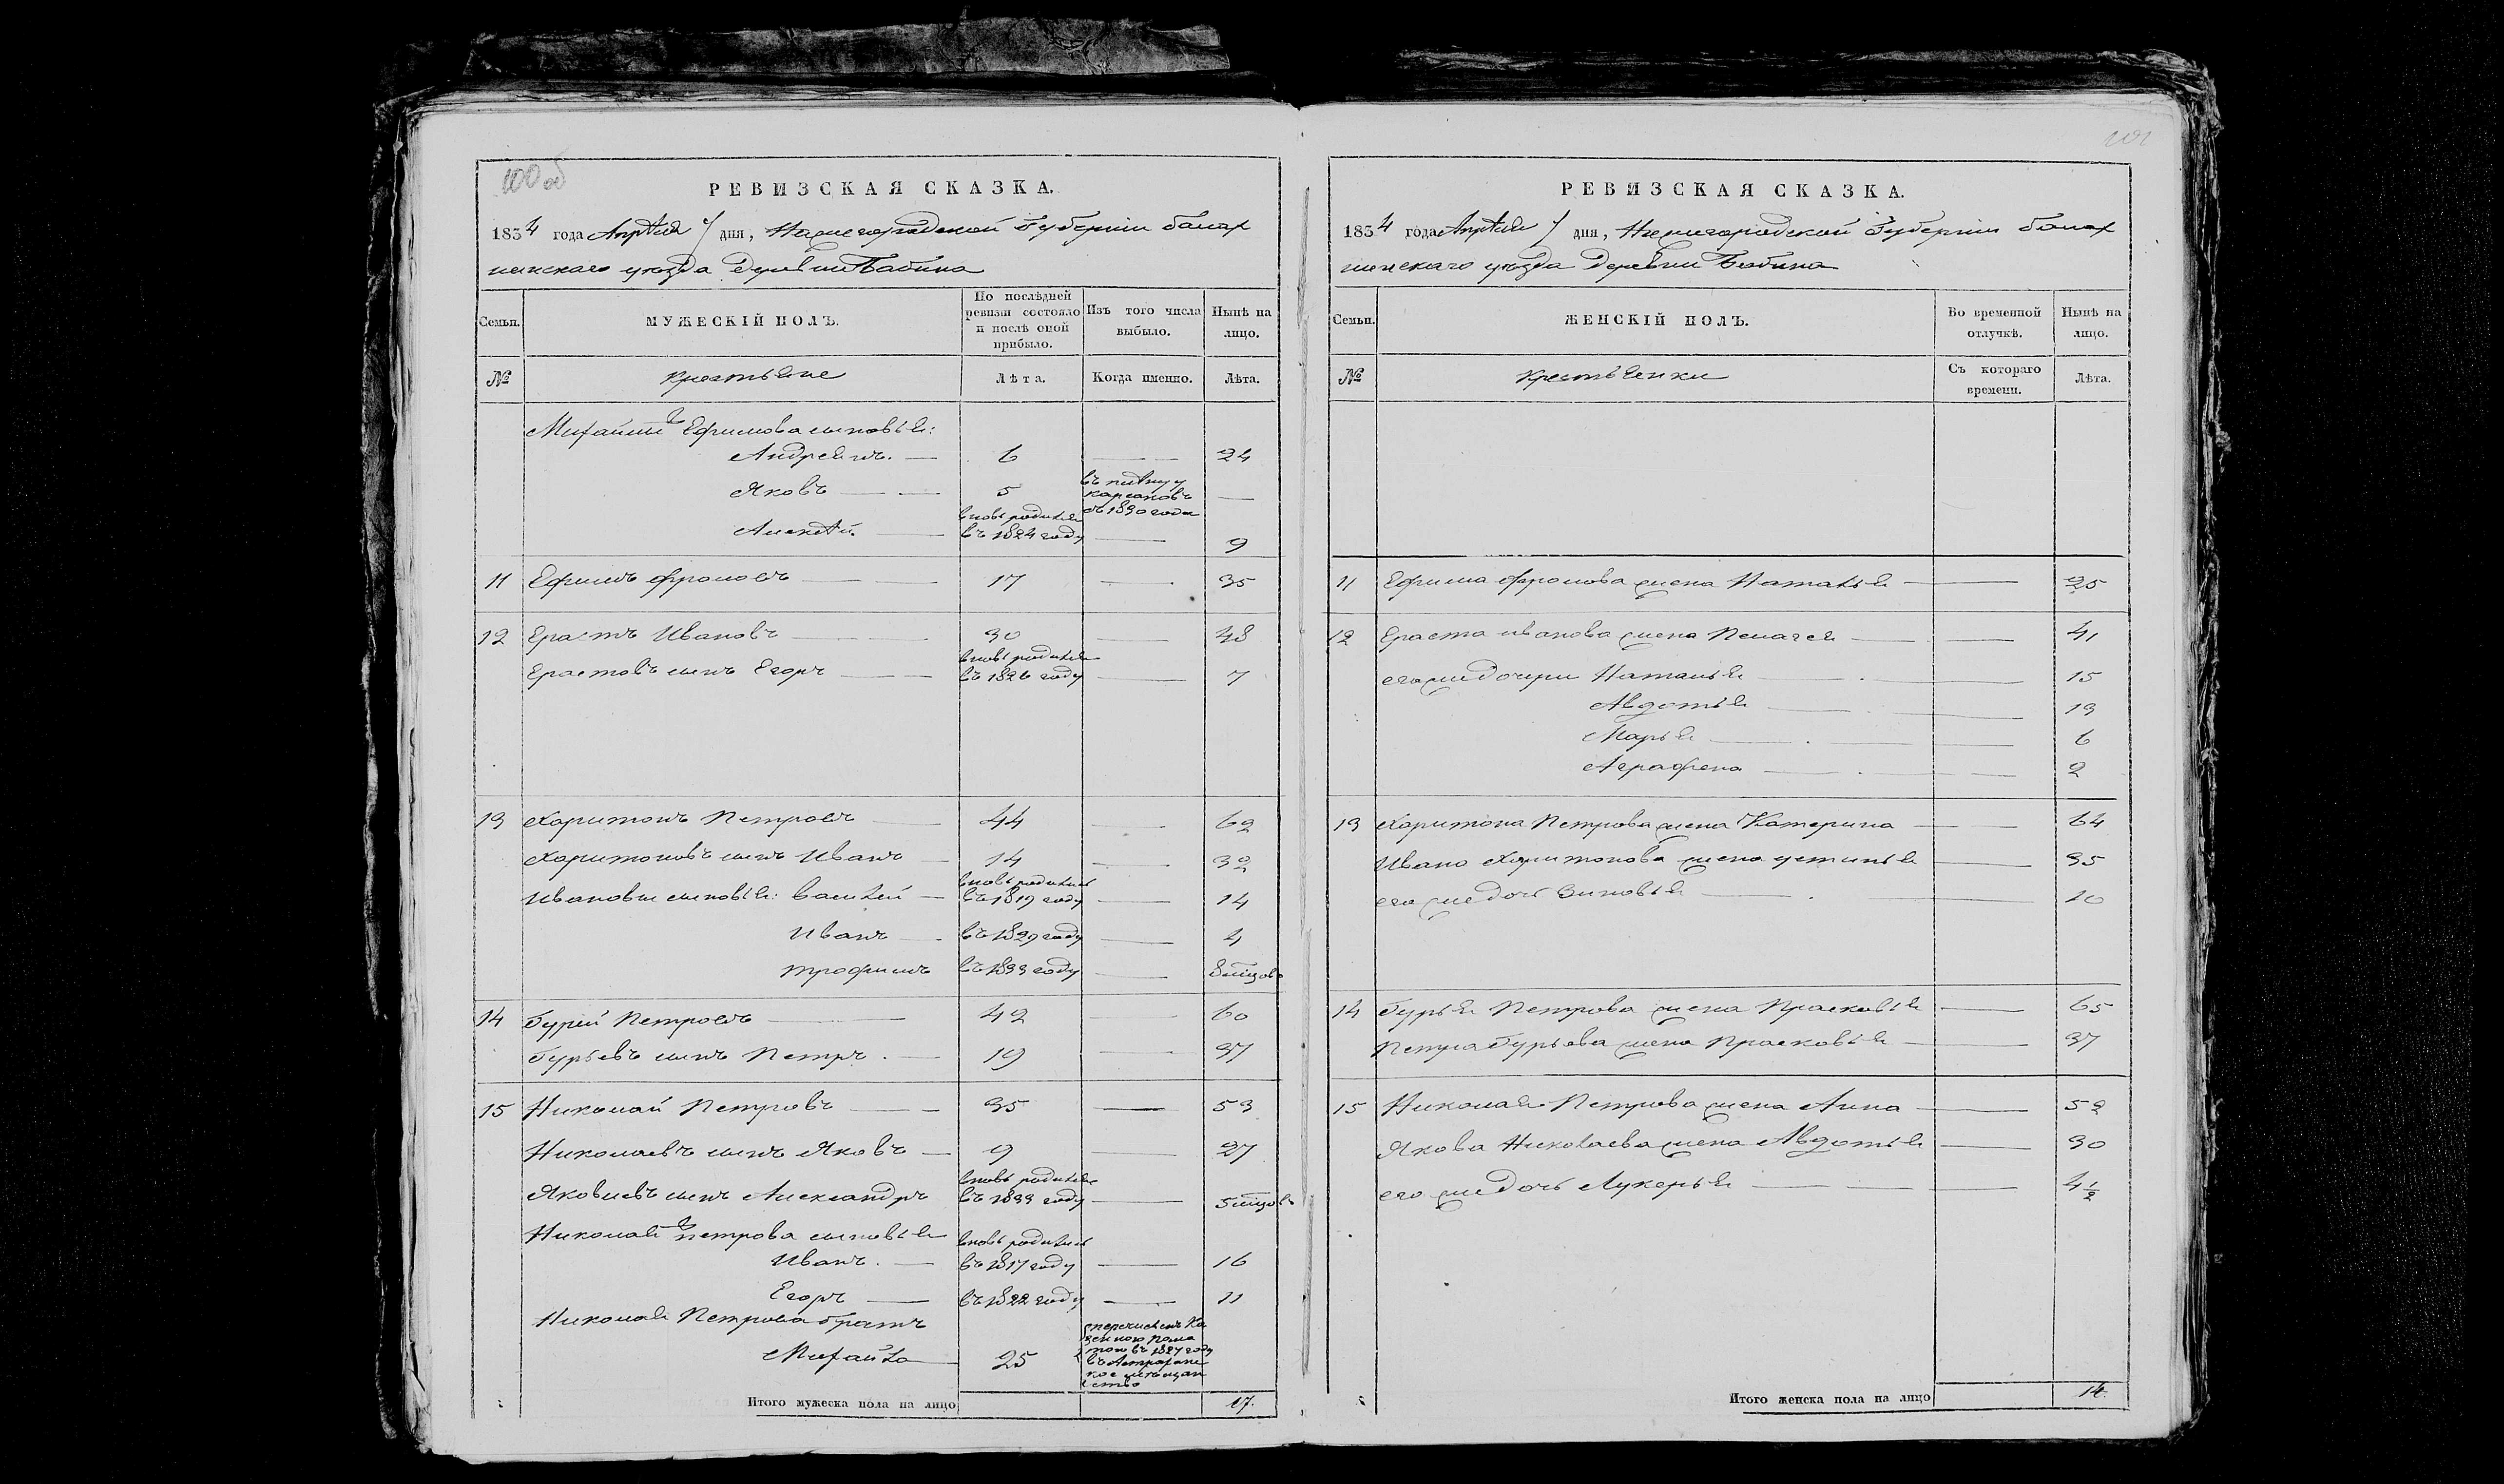 100 об
РЕВИЗСКАЯ СКАЗКА.
1834 года Апрѣля 7 дня, Нижегородской Губерніи балах
нинскаго уѣзда деревни Бабина
Семьи.
МУЖЕСКІЙ ПОЛЪ.
По послѣдней ревизіи состояло и послѣ оной прибыло.
Изъ того числа выбыло.
Нынѣ на лицо.
№
крестьяне
Лѣта.
Когда именно.
Лѣта.
Михайлы Ефимова сыновья:
Андреянъ. 6 24
Яковъ 5
съ 1830 года
Алексѣй. вновь родился въ 1824 году 9
11 Ефимъ Фроловъ 17 35
12 Ерастъ Ивановъ 30 48
Ерастовъ сынъ Егоръ вновь родился въ 1826 году 7
13 Харитонъ Петровъ 44 62
Харитоновъ сынъ Иванъ 14 32
Ивановы сыновья: Василей вновь родились въ 1819 году 14
Иванъ въ 1829 году 4
Трофимъ въ 1833 году 8 мѣцовъ
14 Гурей Петровъ 42 60
Гурьевъ сынъ Петръ. 19 37
15 Николай Петровъ 35 53
Николаевъ сынъ Яковъ 9 27
Яковлевъ сынъ Александръ вновь родился въ 1833 году 5 мѣцовъ
Николая Петрова сыновья вновь родились
Иванъ. въ 1817 году 16
Егоръ въ 1822 году 11
Николая Петрова братъ
Михайла 25 перечисленъ Ка
зенною пала
тою въ 1827 году
въ Астрахан
ское мѣщан
ство
Итого мужеска пола на лицо 17.
101
РЕВИЗСКАЯ СКАЗКА.
1834 года Апрѣля 7 дня, Нижегородской Губерніи балах
нинскаго уѣзда деревни Бабина
Семьи.
ЖЕНСКІЙ ПОЛЪ.
Во временной отлучкѣ.
Нынѣ на лицо.
№
крестьянки
Съ котораго времени.
Лѣта.
11 Ефима Фролова жена Наталья 35
12 Ераста Иванова жена Пелагея 41
его же дочери Наталья 15
Авдотья 13
Марья 6
Аграфена 2
13 Харитона Петрова жена Катерина 64
Ивана Харитонова жена Устинья 35
его же дочь Зиновья 10
14 Гурья Петрова жена Прасковья 65
Петра Гурьева жена Прасковья 37
15 Николая Петрова жена Анна 52
Якова Николаева жена Авдотья 30
его же дочь Лукерья 4 1/2
Итого женска пола на лицо 14.